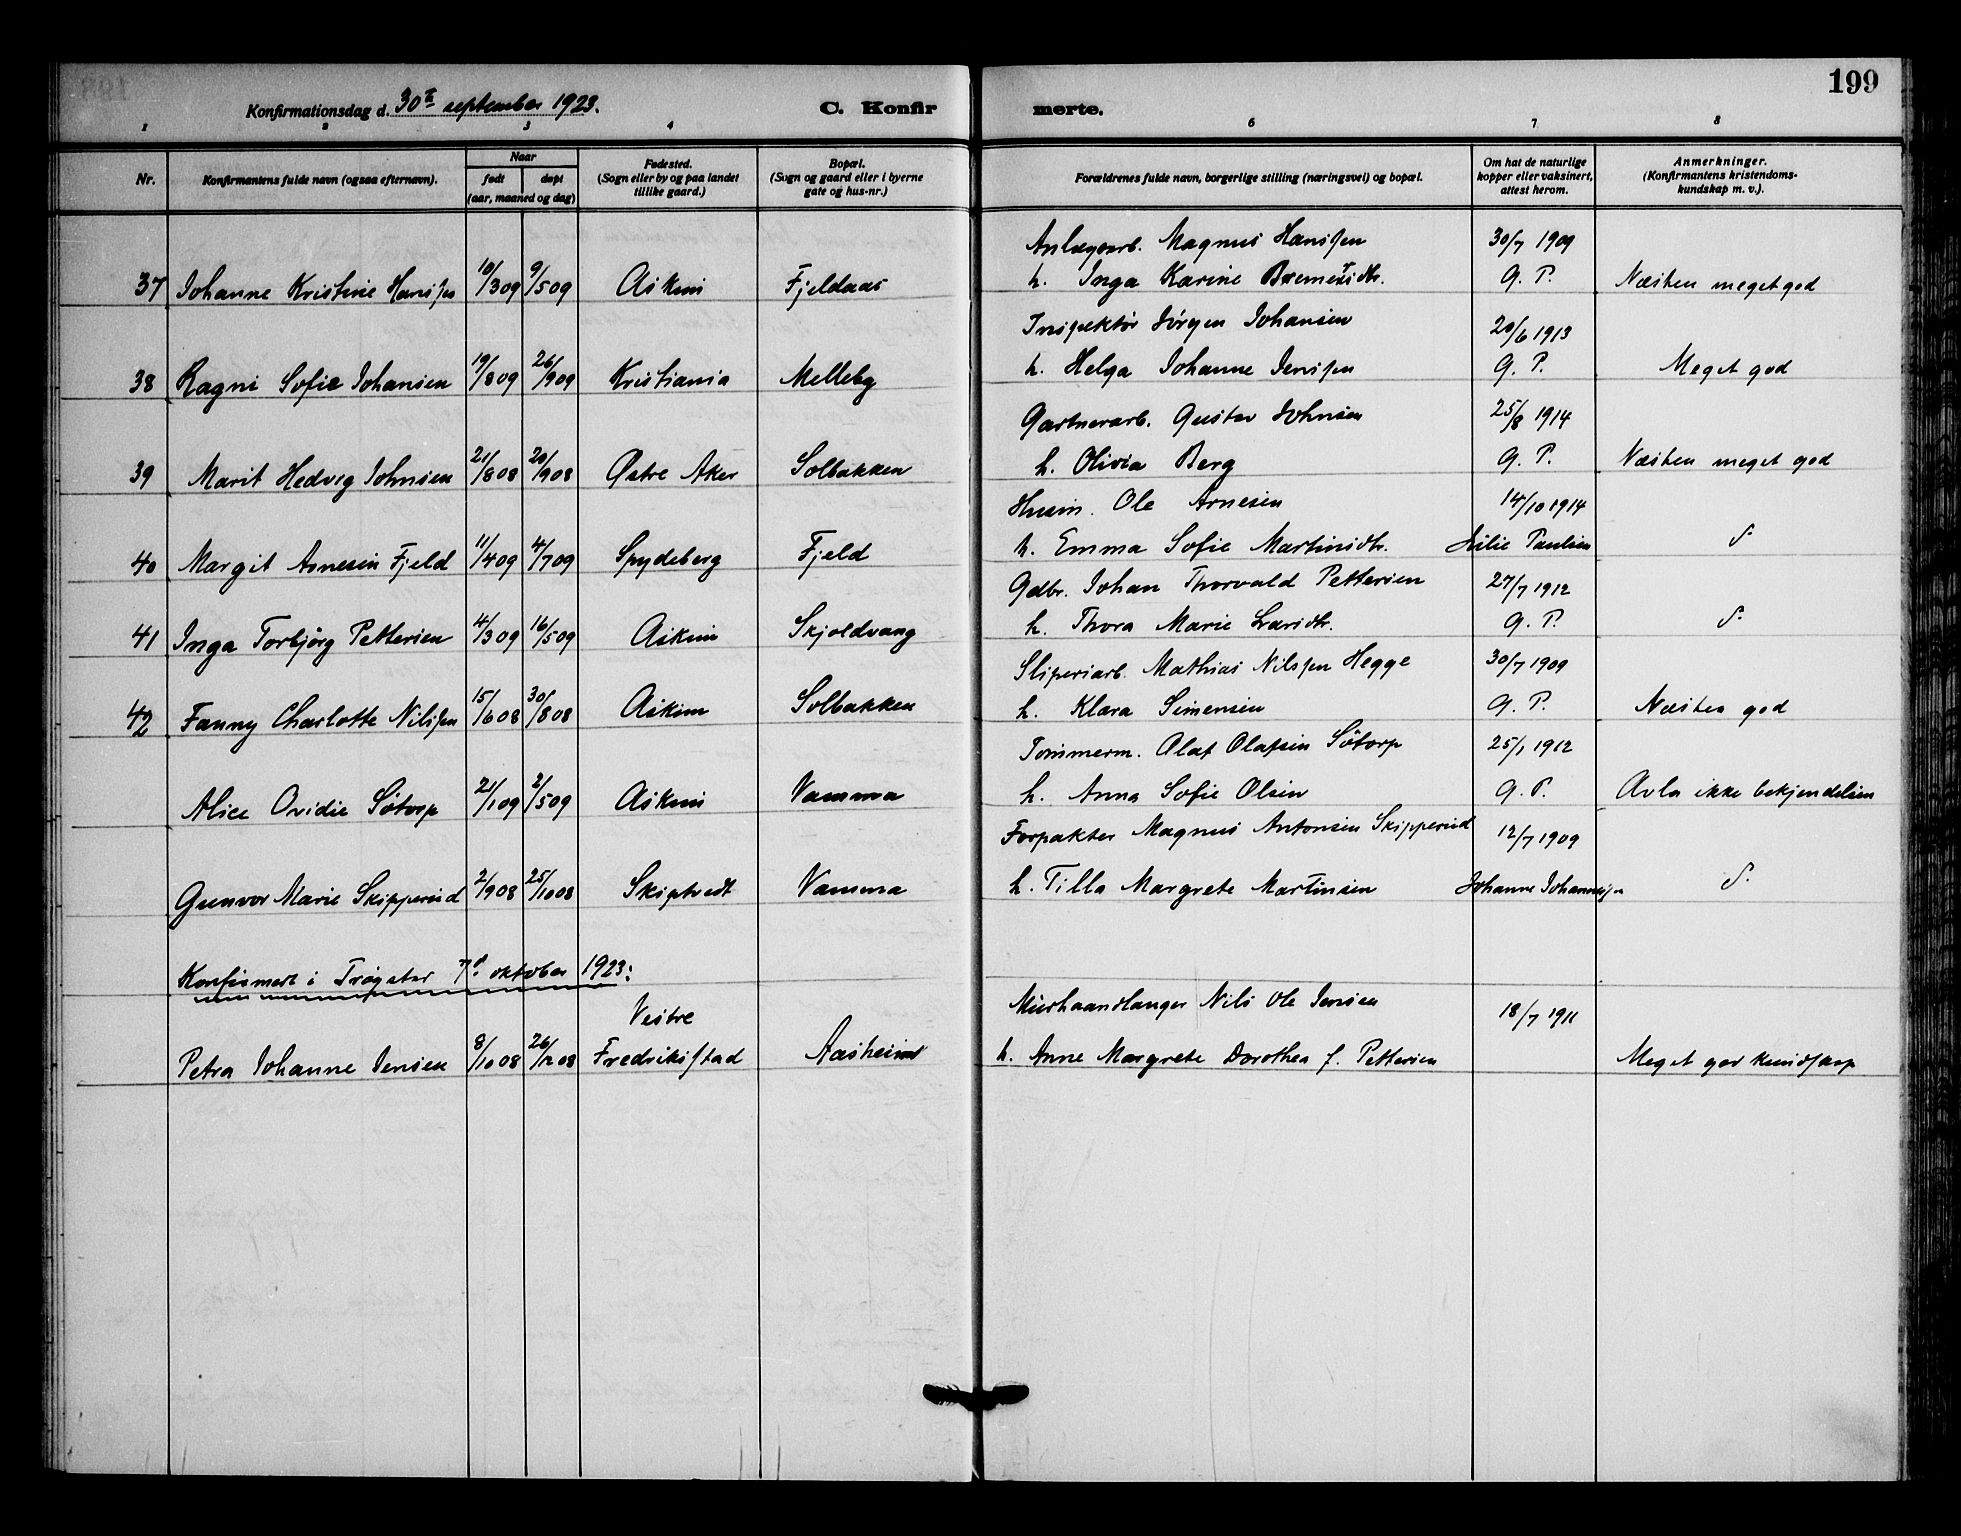 199
Konfirmationsdag d. 30te september 1923. C. Konfir merte.
1 2 3 4 6 7 8
Nr. Konfirmantens fulde navn (ogsaa efternavn). Naar født døpt (aar, maaned og dag) Fødested. (Sogn eller by og paa landet tillike gaard.) Bopæl. (Sogn og gaard eller i byerne gate og hus-nr.) Forældrenes fulde navn, borgerlige stilling (næringsvei) og bopæl. Om hat de naturlige kopper eller vaksinert, attest herom. Anmerkninger. (Konfirmantens kristendoms-kundskap m. v.).
Anlægsarb. Magnus Hansen 30/7 1909
37 Johanne Kristine Hansen 10/3 09 9/5 09 Askim Fjeldaas h. Inga Karine G. P. Næsten meget god
Inspektør Jørgen Johansen 20/6 1913
38 Ragni Sofie Johansen 19/8 09 26/9 09 Kristiania Melleby h. Helga Johanne Jensen G. P. Meget god
Gartnerarb. Gustav Johnsen 25/8 1914
39 Marit Hedvig Johnsen 21/8 08 20/9 08 Østre Aker Solbakken h. Olivia Berg G. P. Næsten meget god
Husm. Ole Arnesen 14/10 1914
40 Margit Arnesen Fjeld 11/4 09 4/7 09 Spydeberg Fjeld h. Emma Sofie Martinsdtr. Paulsen
Gdbr. Johan Thorvald Pettersen 27/7 1912
41 Inga Torbjørg Pettersen 4/3 09 16/5 09 Askim Skjoldvang h. Thora Marie Larsdtr. G. P.
Sliperiarb. Mathias Nilssen Hegge 30/7 1909
42 Fanny Charlotte Nilssen 15/6 08 30/8 08 Askim Solbakken h. Klara Simensen G. P. Næsten god
Tømmerm. Olaf Olafsen Søtorp 25/1 1912
Alice Ovidie Søtorp 2/1 09 2/5 09 Askim Vamma h. Anna Sofie Olsen G. P. Avla ikke bekjendelsen
Forpakter Magnus Antonsen Skipperud 12/7 1909
Gunvor Marie Skipperud 2/9 08 25/10 08 Skiptvedt Vamma h. Tilla Margrete Martinsen Johanne Johannessen
Konfirmert i Trøgstad 7d. oktober 1923:
Murhaandlanger Nils Ole Jensen 18/7 1911
Petra Johanne Jensen 8/10 08 26/12 08 Vestre Fredrikstad Aasheim h. Anne Margrete Dorothea f. Pettersen Meget god kundskap